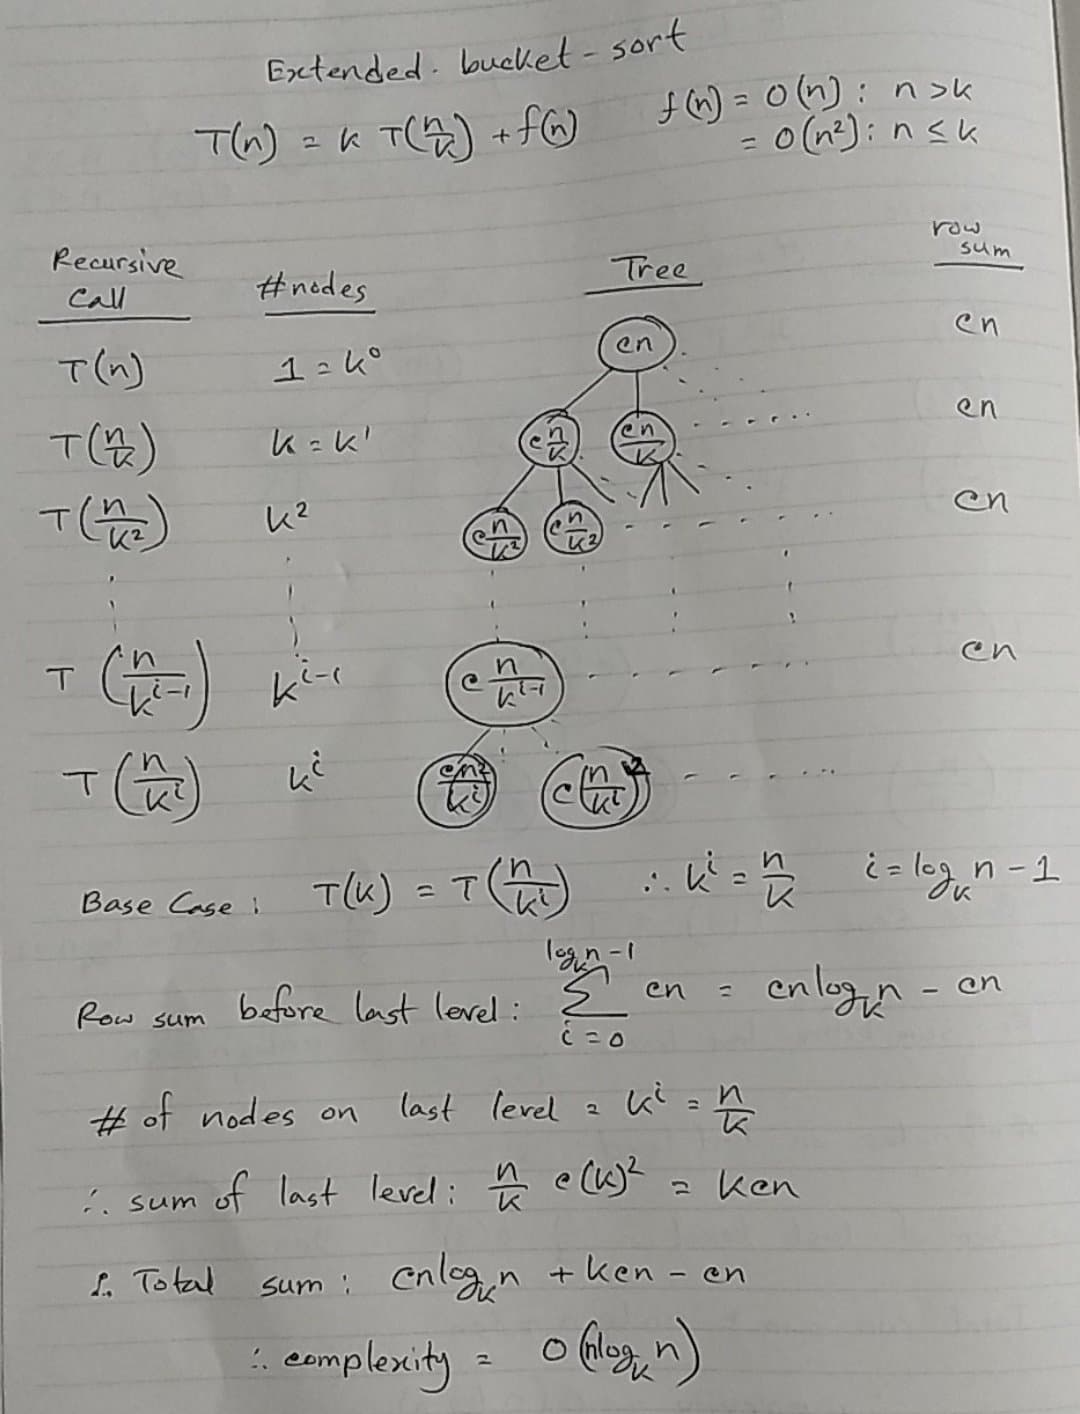 Extended - bucket - sort
T(n) = k T(n/k) + f(n)    f(n) = O(n) : n > k
= O(n²) : n ≤ k
Recursive Call    # nodes    Tree    row sum
T(n)    1 = k⁰    cn    cn
T(n/k)    k = k¹    c n/k    cn/k    cn
T(n/k²)    k²    c n/k²    c n/k²    cn
T(n/kⁱ⁻¹)    kⁱ⁻¹    c n/kⁱ⁻¹    cn
T(n/kⁱ)    kⁱ    cn²/kⁱ    c(n/kⁱ)²
Base Case : T(k) = T(n/kⁱ)    ∴ kⁱ = n/k    i = logₖ n - 1
Row sum before last level : Σ_{i=0}^{logₖ n - 1} cn = cn logₖ n - cn
# of nodes on last level = kⁱ = n/k
∴ sum of last level : n/k c(k)² = kcn
∴ Total sum : cn logₖ n + kcn - cn
∴ complexity = O(n logₖ n)